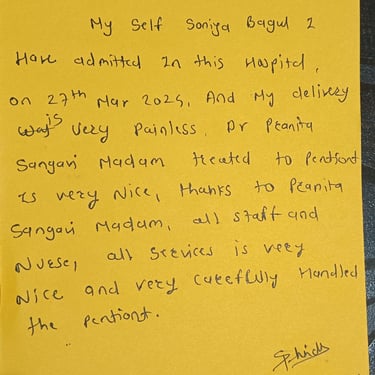 My Self Soniya Bagul I
Have admitted In this Hospital,
on 27th Mar 2025, And My delivery
is very Painless, Dr Pranita
Sangavi Madam treated to Pentiont
is very Nice, thanks to Pranita
Sangavi Madam, all staff and
Nurse, all Services is very
Nice and very carefully Handled
the Pentiont.